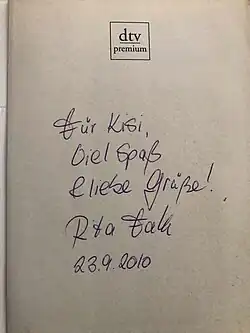 dtv
premium
Für Kisi,
Viel Spaß
& liebe Grüße!
Rita Falk
23.9.2010